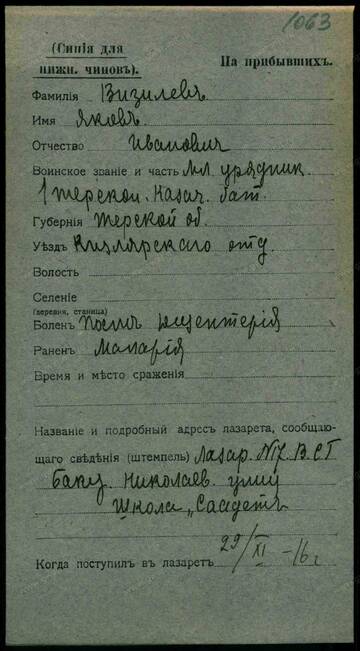 1063
(Синія для
нижн. чиновъ).
На прибывшихъ.
Фамилія Визилевъ
Имя Яковъ.
Отчество Ивановичъ
Воинское званіе и часть мл. урядник.
1 терской. Казач. бат.
Губернія терской об.
Уѣздъ Кизлярскаго отд.
Волость
Селеніе
(деревня, станица)
Боленъ послѣ дизентерія
Раненъ Малярія
Время и мѣсто сраженія
Названіе и подробный адресъ лазарета, сообщаю-
щаго свѣдѣнія (штемпель) Лазар. В.С.Г.
Баку. Николаев. улиц
Школа „Саадетъ
Когда поступилъ въ лазаретъ 29/XI -16 г